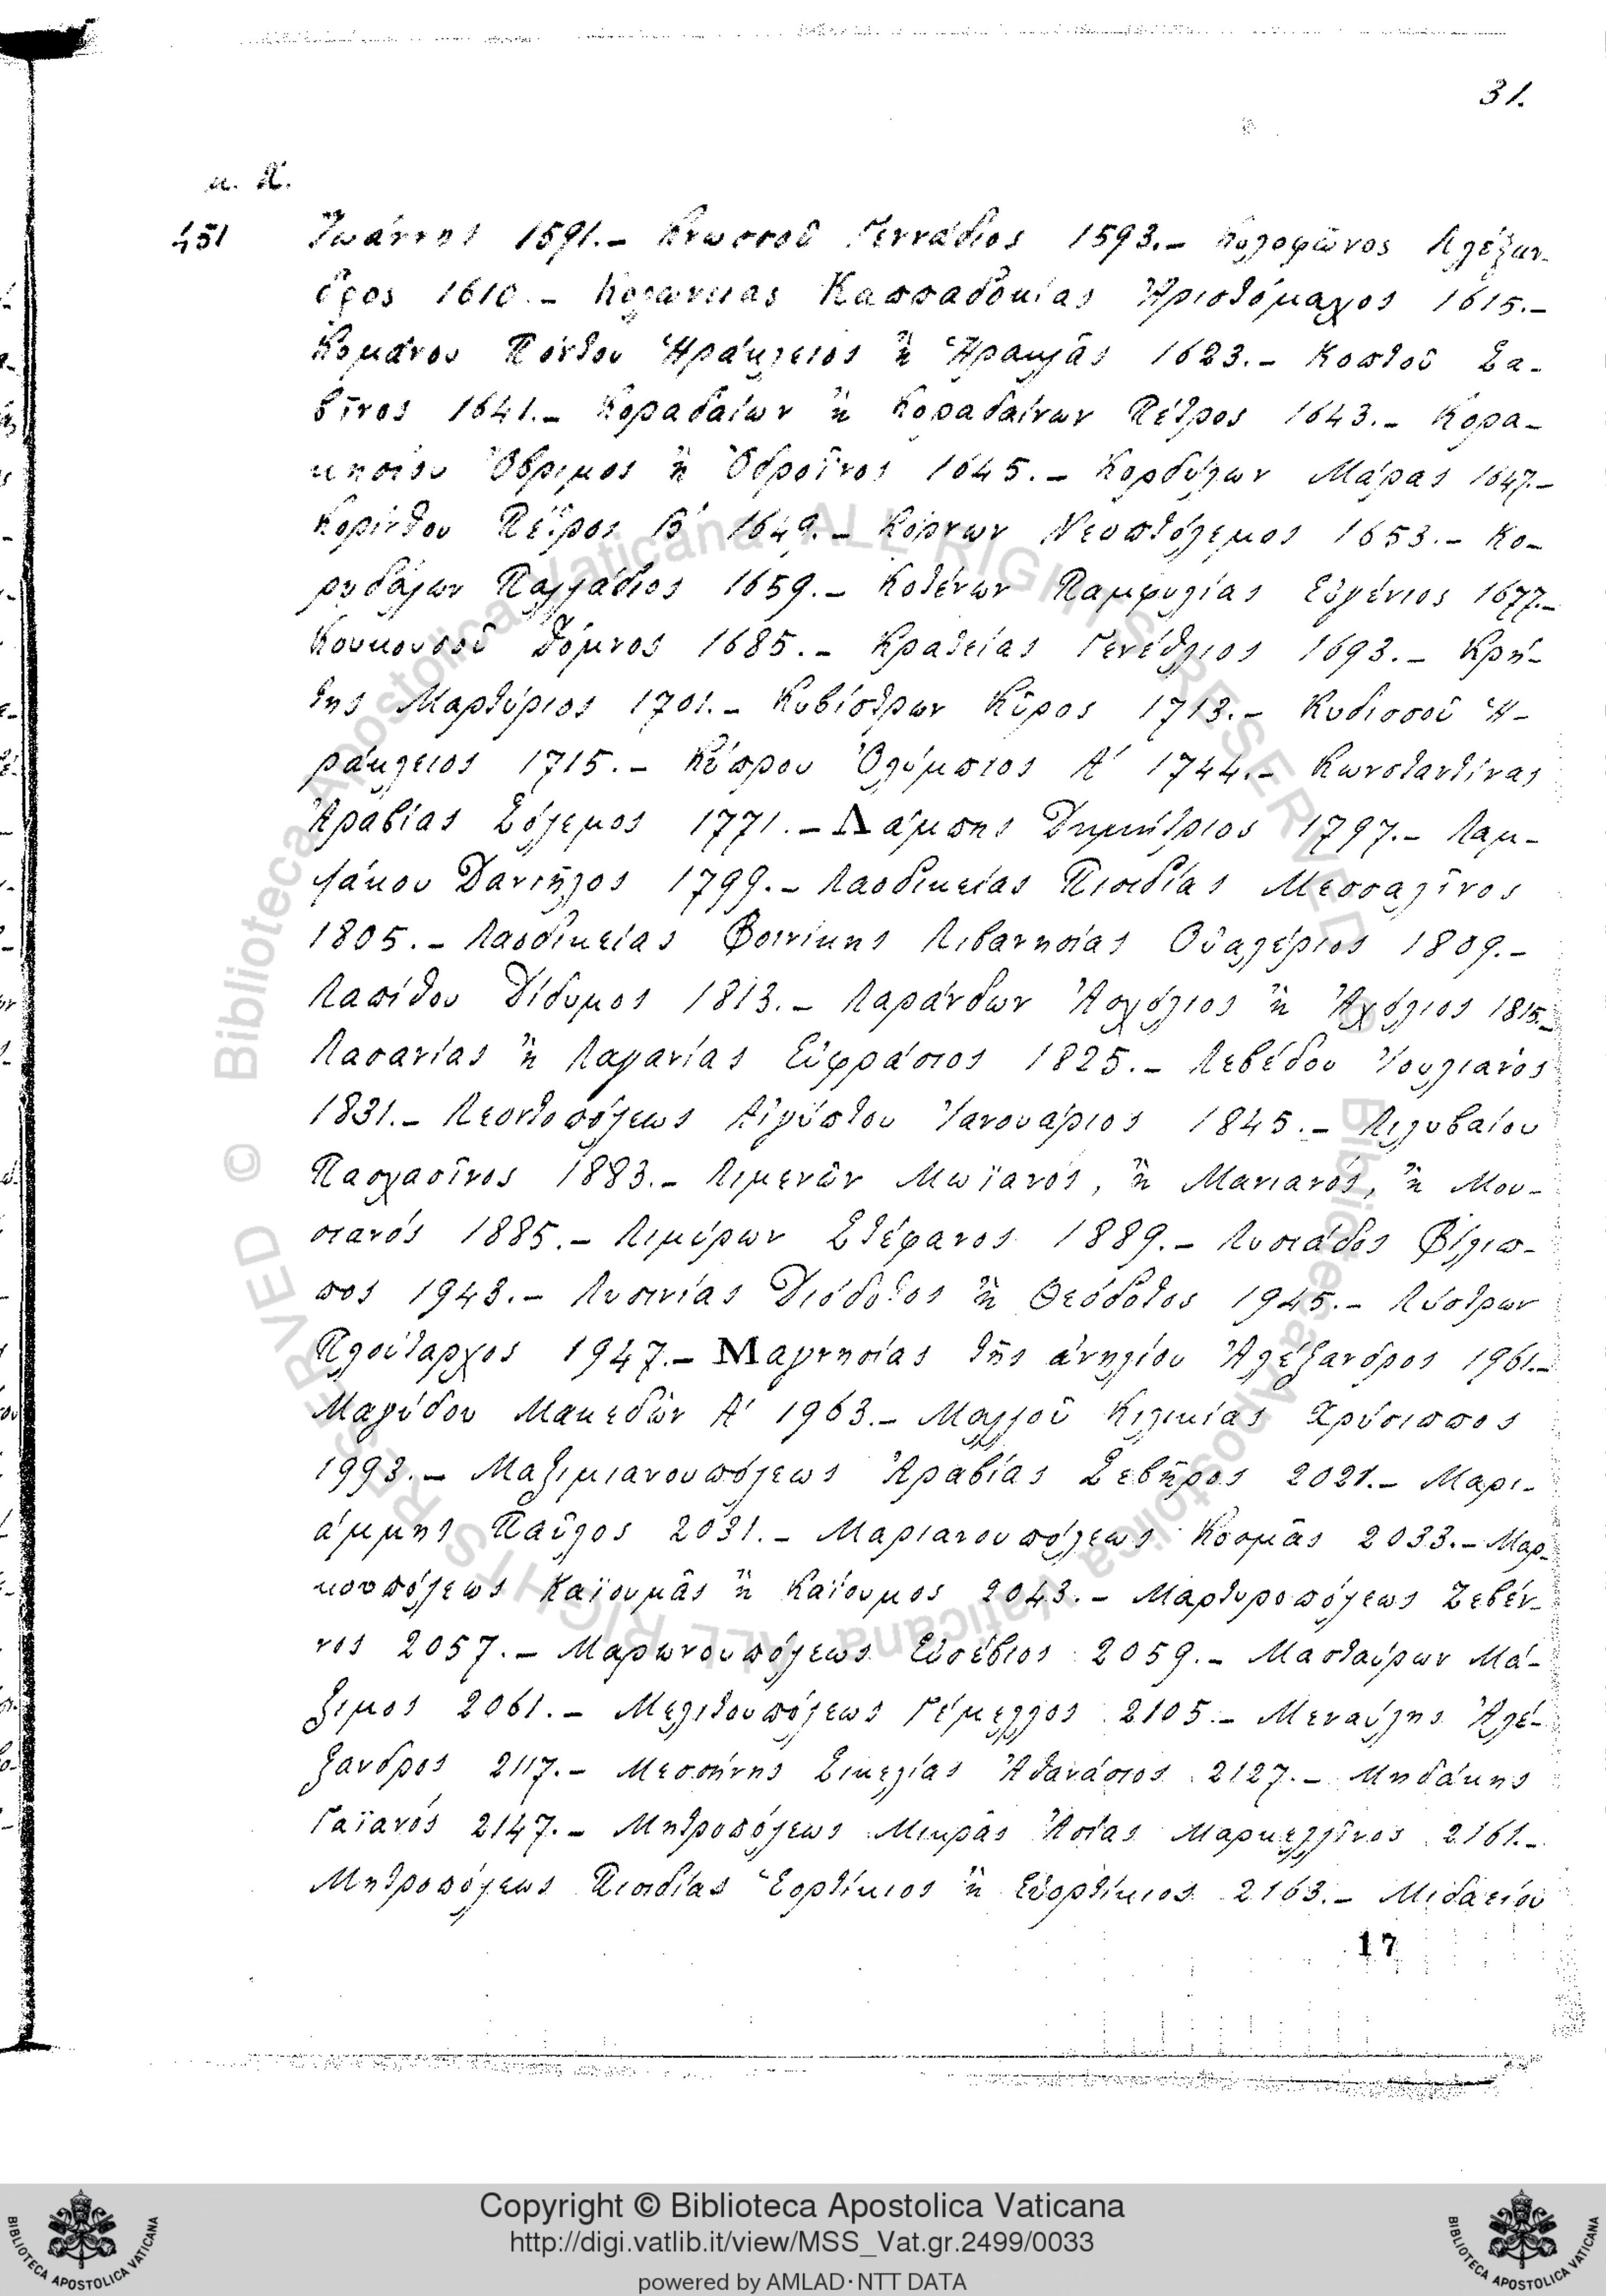 31.
μ. Χ.
451 Ἰωάννης 1591.– Κνωσσοῦ Γεννάδιος 1593.– Κολοφῶνος Ἀλέξαν-
δρος 1610.– Κολωνείας Καππαδοκίας Ἀριστόμαχος 1615.–
Κομάνου Πόντου Ἡράκλειος ἢ Ἡρακλᾶς 1623.– Κοπτοῦ Σα-
βῖνος 1641.– Κοραδαίων ἢ Κοραδαίνων Πέτρος 1643.– Κορα-
κησίου Ὄβριμος ἢ Ὀβροῖνος 1645.– Κορδύλων Μάρας 1647.–
Κορίνθου Πέτρος Β΄ 1649.– Κόρνων Νεοπτόλεμος 1653.– Κο-
ρυδάλων Παλλάδιος 1659.– Κοτένων Παμφυλίας Εὐγένιος 1677.–
Κουκουσοῦ Δόμνος 1685.– Κρατείας Γενέθλιος 1693.– Κρή-
της Μαρτύριος 1701.– Κυβίστρων Κῦρος 1713.– Κυδισσοῦ Ἡ-
ράκλειος 1715.– Κύπρου Ὀλύμπιος Α΄ 1744.– Κωνσταντίνας
Ἀραβίας Σόλεμος 1771.– Λάμπης Δημήτριος 1797.– Λαμ-
ψάκου Δανιῆλος 1799.– Λαοδικείας Πισιδίας Μεσσαλῖνος
1805.– Λαοδικείας Φοινίκης Λιβανησίας Οὐαλέριος 1809.–
Λαπίθου Δίδυμος 1813.– Λαράνδων Ἀσχόλιος ἢ Ἀχόλιος 1815.–
Λασανίας ἢ Λαγανίας Εὐφράσιος 1825.– Λεβέδου Ἰουλιανός
1831.– Λεοντοπόλεως Αἰγύπτου Ἰανουάριος 1845.– Λιλυβαίου
Πασχασῖνος 1883.– Λιμενῶν Μωϊανός, ἢ Μανιανός, ἢ Μου-
σιανός 1885.– Λιμύρων Στέφανος 1889.– Λυσιάδος Φίλιπ-
πος 1943.– Λυσινίας Διόδοτος ἢ Θεόδοτος 1945.– Λύστρων
Πλούταρχος 1947.– Μαγνησίας τῆς ἀνηλίου Ἀλέξανδρος 1961.–
Μαγύδου Μακεδὼν Α΄ 1963.– Μαλλοῦ Κιλικίας Χρύσιππος
1993.– Μαξιμιανουπόλεως Ἀραβίας Σεβῆρος 2021.– Μαρι-
άμμης Παῦλος 2031.– Μαριανουπόλεως Κοσμᾶς 2033.– Μαρ-
κουπόλεως Καϊουμᾶς ἢ Καΐουμος 2043.– Μαρτυροπόλεως Ζεβέν-
νος 2057.– Μαρωνουπόλεως Εὐσέβιος 2059.– Μασταύρων Μά-
ξιμος 2061.– Μελιτουπόλεως Γέμελλος 2105.– Μεναύλης Ἀλέ-
ξανδρος 2117.– Μεσσήνης Σικελίας Ἀθανάσιος 2127.– Μηδάκης
Γαϊανός 2147.– Μητροπόλεως Μικρᾶς Ἀσίας Μαρκελλῖνος 2161.–
Μητροπόλεως Πισιδίας Ἑορτίκιος ἢ Εὐορτίκιος 2163.– Μιδαείου
17
Copyright © Biblioteca Apostolica Vaticana
http://digi.vatlib.it/view/MSS_Vat.gr.2499/0033
powered by AMLAD·NTT DATA